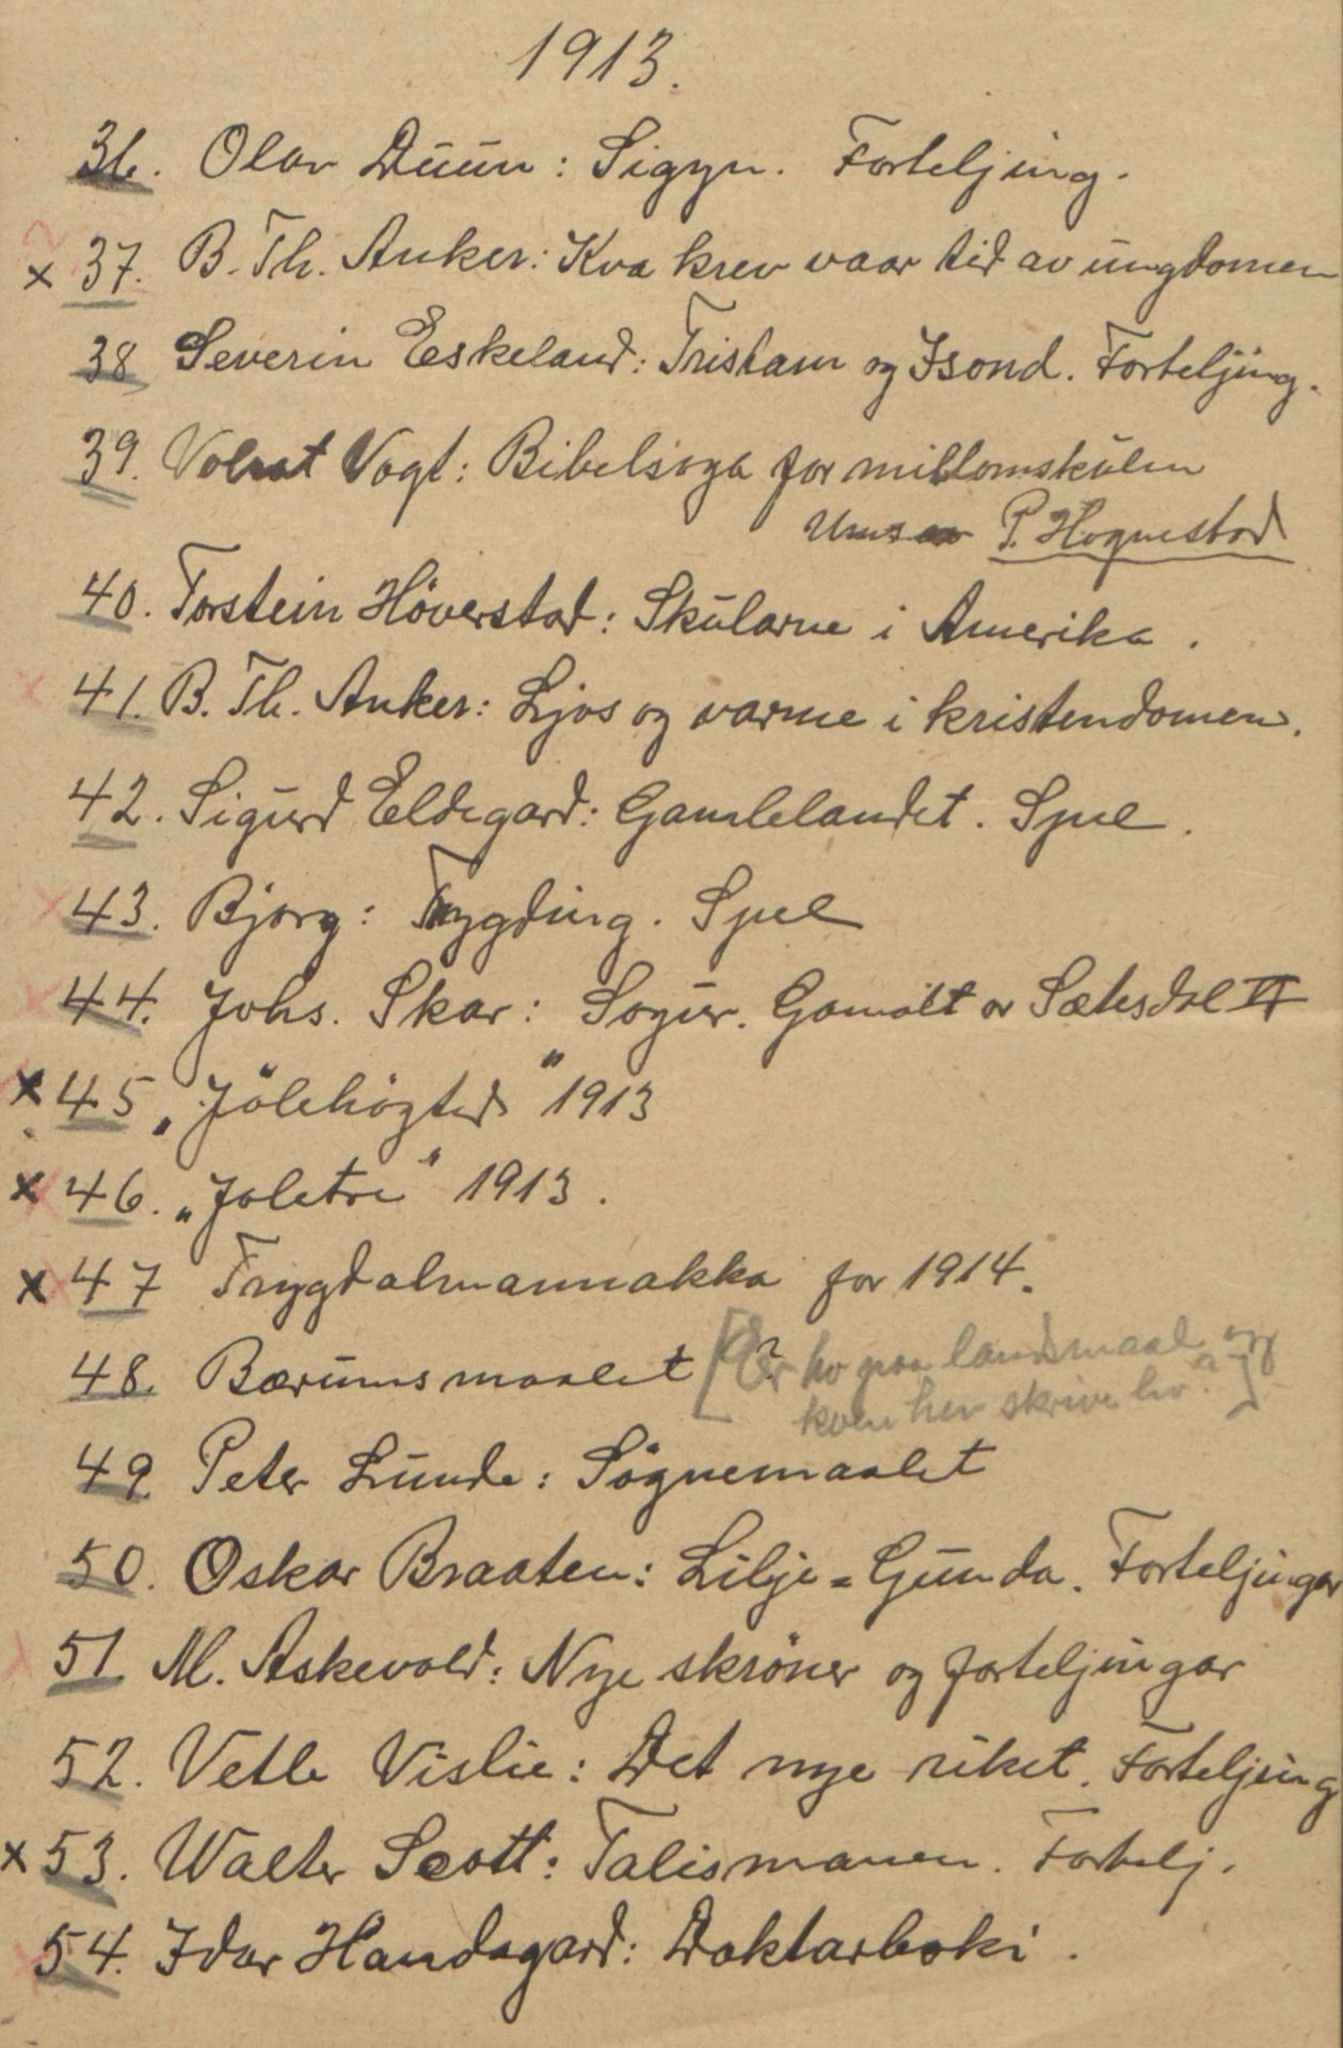 1913.
36. Olav Duun: Sigyn. Forteljing.
x 37. B. Th. Anker: Kva krev vaar tid av ungdomen
38 Severin Eskeland: Tristam og Isond. Forteljing.
39. Volrat Vogt: Bibelsoga for millomskulen
Ums av P. Hognestad
40. Torstein Höverstad: Skularne i Amerika.
x 41. B. Th. Anker: Ljos og varme i kristendomen.
42. Sigurd Eldegard: Gamlelandet. Spel.
x 43. Bjorg: Trygding. Spel
x 44. Johs. Skar: Sogur. Gamalt or Sætesdal VI
x 45 „Jólehøgtid" 1913
x 46. „Joletre" 1913.
x 47 Trygdalmannakka for 1914.
48. Bærumsmaalet [Er ho paa landsmaal og
kven hev skrive ho?]
49 Peter Lunde: Sögnemaalet
50. Oskar Braaten: Lilje-Gunda. Forteljingar
51 M. Askevold: Nye skröner og forteljingar
52. Vetle Vislie: Det nye riket. Forteljing
x 53. Walter Scott: Talismanen. Fortelj.
x 54. Idar Handagard: Doktarboki.